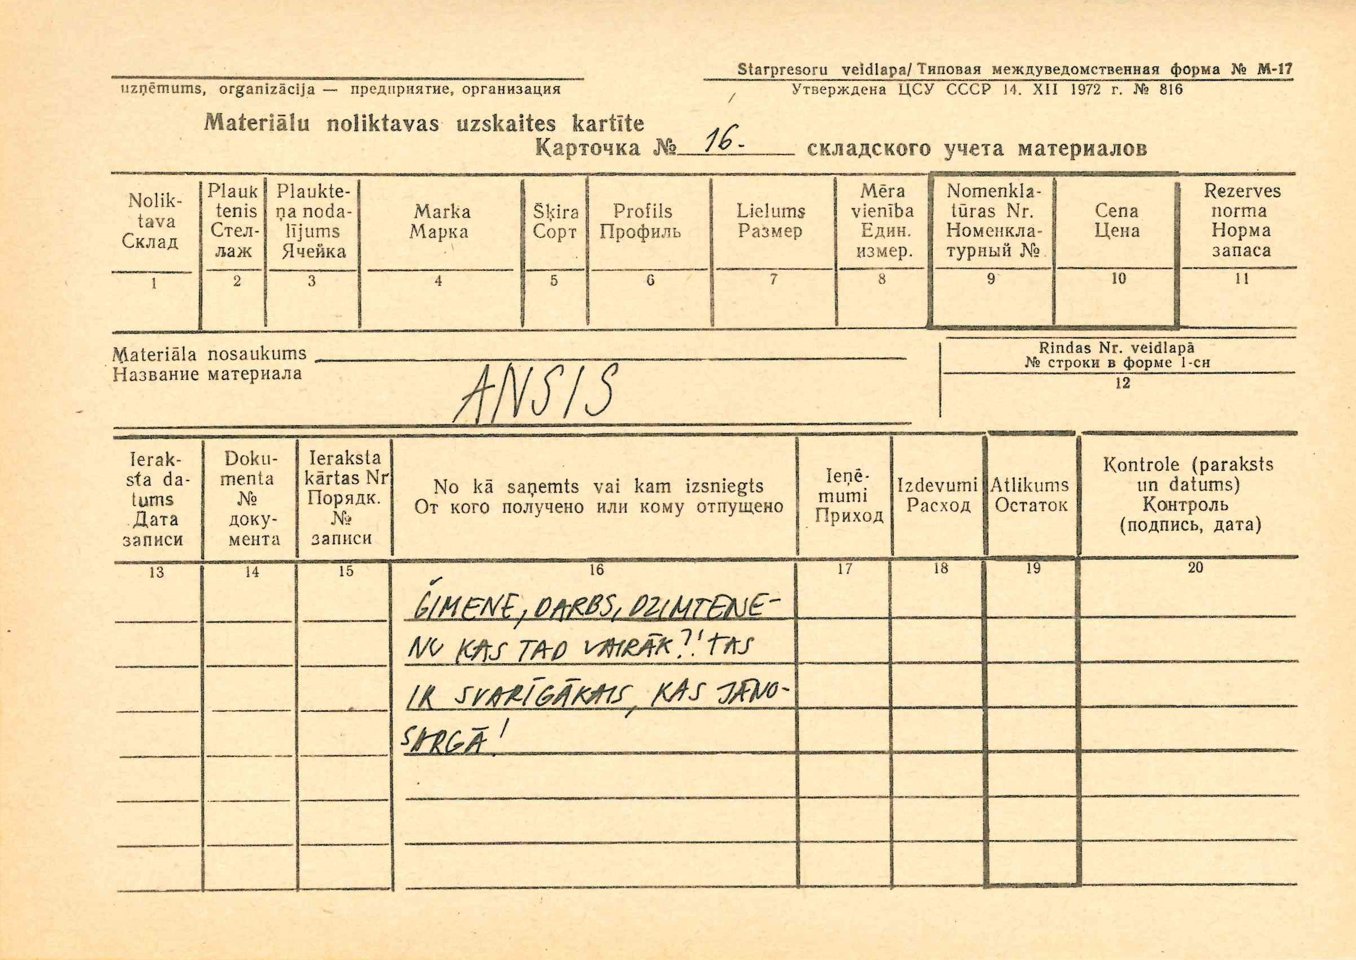 Starpresoru veidlapa/Типовая междуведомственная форма № М-17
uzņēmums, organizācija — предприятие, организация
Утверждена ЦСУ СССР 14. XII 1972 г. № 816
Materiālu noliktavas uzskaites kartīte
Карточка № 16. складского учета материалов
Nolik-
tava
Склад
Plauk
tenis
Стел-
лаж
Plaukte-
ņa noda-
lījums
Ячейка
Marka
Марка
Šķira
Сорт
Profils
Профиль
Lielums
Размер
Mēra
vienība
Един.
измер.
Nomenkla-
tūras Nr.
Номенкла-
турный №
Cena
Цена
Rezerves
norma
Норма
запаса
1 2 3 4 5 6 7 8 9 10 11
Materiāla nosaukums
Название материала
ANSIS
Rindas Nr. veidlapā
№ строки в форме 1-сн
12
Ierak-
sta da-
tums
Дата
записи
Doku-
menta
№
доку-
мента
Ieraksta
kārtas Nr
Порядк.
№
записи
No kā saņemts vai kam izsniegts
От кого получено или кому отпущено
Ieņē-
mumi
Приход
Izdevumi
Расход
Atlikums
Остаток
Kontrole (paraksts
un datums)
Контроль
(подпись, дата)
13 14 15 16 17 18 19 20
ĢIMENE, DARBS, DZIMTENE-
NU KAS TAD VAIRĀK?! TAS
IR SVARĪGĀKAIS, KAS JĀNO-
SARGĀ!